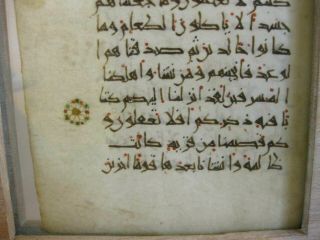 كنتم لا تعلمون وما جعلنهم
جسدا لا ياكلون الطعام وما
كانوا خلدين ثم صدقنهم ا
لوعد فانجينهم ومن نشا واهلكنا
المسرفين لقد انزلنا اليكم كتا
با فيه ذكركم افلا تعقلون و
كم قصمنا من قرية كانت
ظالمة وانشانا بعدها قوما اخرين